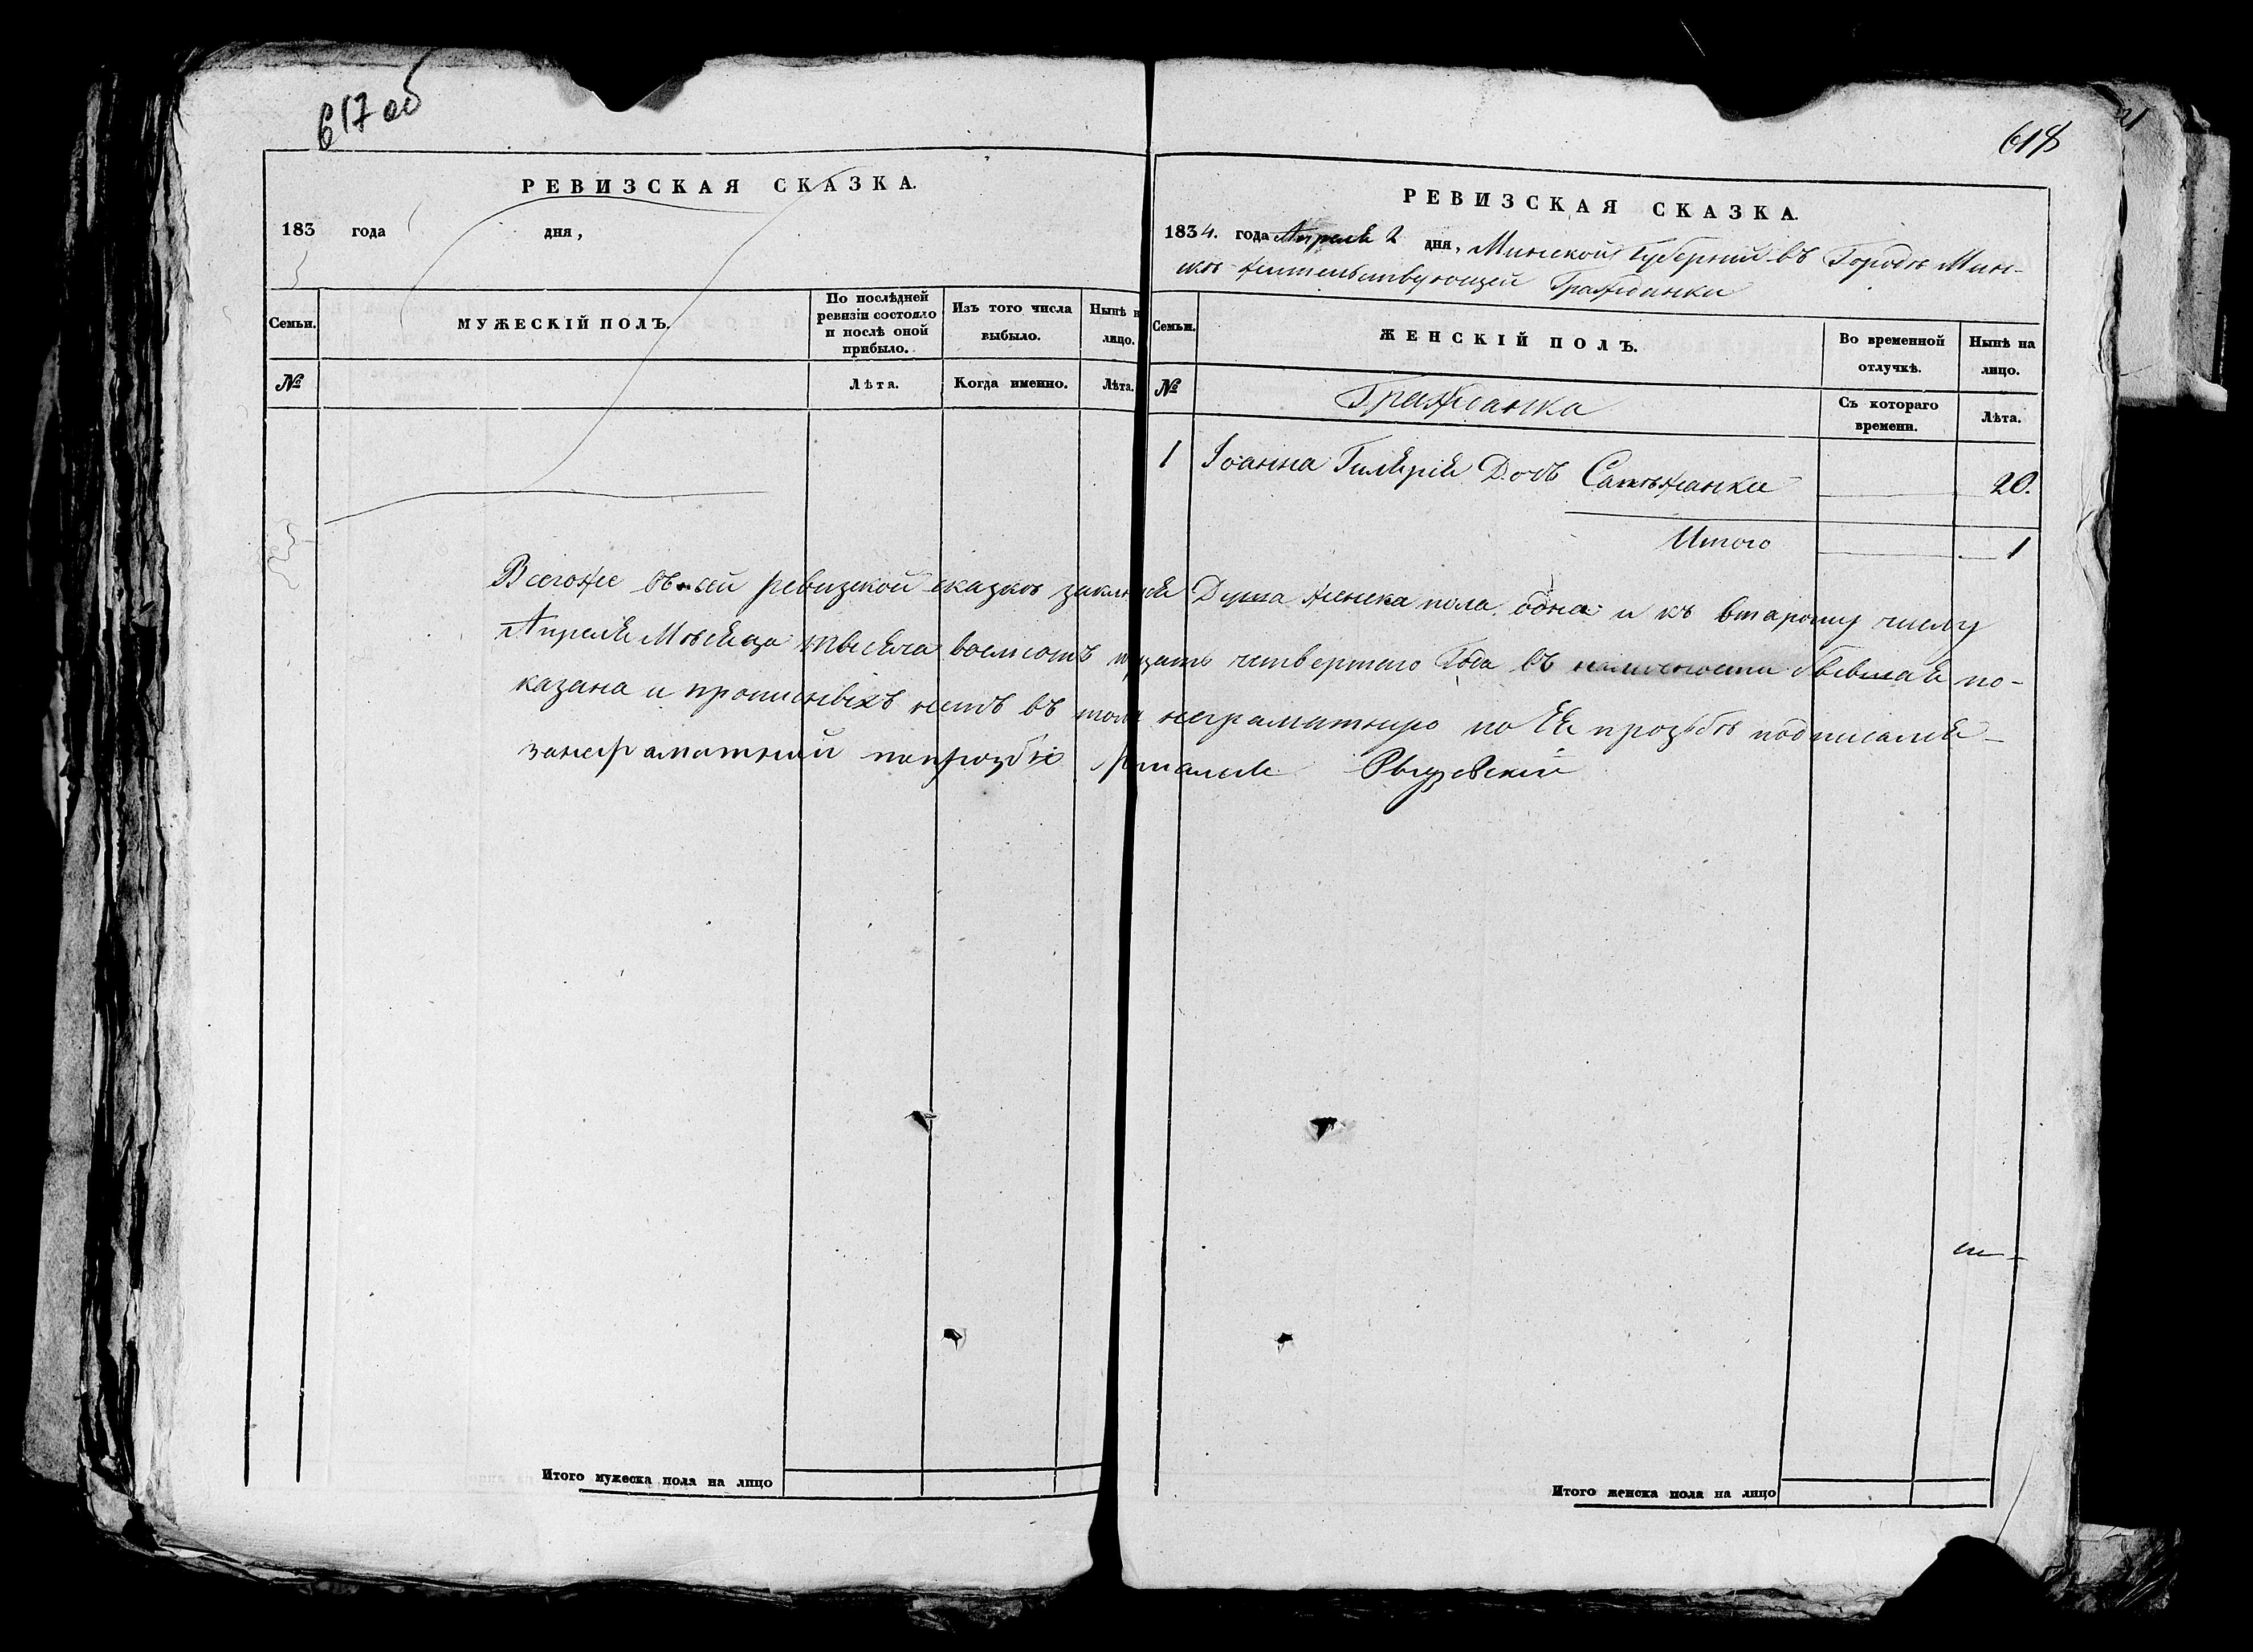 617 об
618
РЕВИЗСКАЯ СКАЗКА.
183 года дня,
Семьи.
МУЖЕСКІЙ ПОЛЪ.
По послѣдней
ревизіи состояло
и послѣ оной
прибыло.
Изъ того числа
выбыло.
Нынѣ н
лицо.
№
Лѣта.
Когда именно.
Лѣта.
РЕВИЗСКАЯ СКАЗКА.
1834. года Апреля 2 дня, Минской Губерніи въ Городѣ Мин-
скѣ жительствующей Гражданки
Семьи.
ЖЕНСКІЙ ПОЛЪ.
Во временной
отлучкѣ.
Нынѣ на
лицо.
№
Гражданка
Съ котораго
времени.
Лѣта.
1 Іоанна Гилярія Дочь 20.
Итого 1
Всегоже въ сей ревизской сказкѣ Душа женска пола одна и къ второму числу
Апреля Мѣсяца тысяча восмсотъ четвертаго Года въ наличности бывшая по-
казана и прописныхъ нетъ въ томъ по Ея прозьбѣ подписался
Итого мужеска пола на лицо
Итого женска пола на лицо